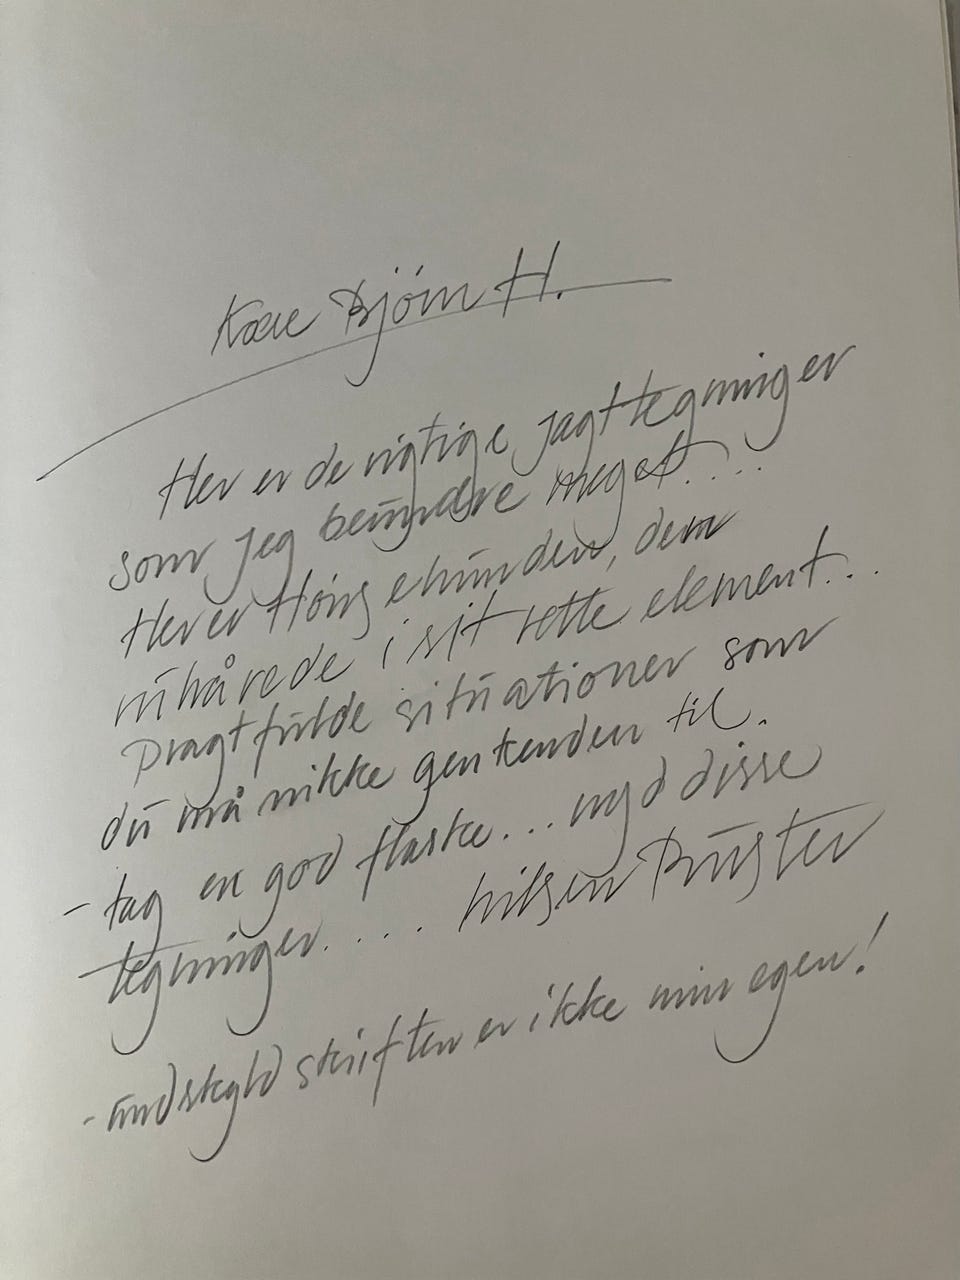 Kære Bjórn H.
Her er de rigtige jagttegninger
som jeg beundre meget....
Her er Hønsehunden, den
ruhårede i sit rette element...
Pragtfulde situationer som
du må nikke genkenden til.
- tag en god flaske... nyd disse
tegninger.... hilsen Buster
- undskyld skriften er ikke min egen!